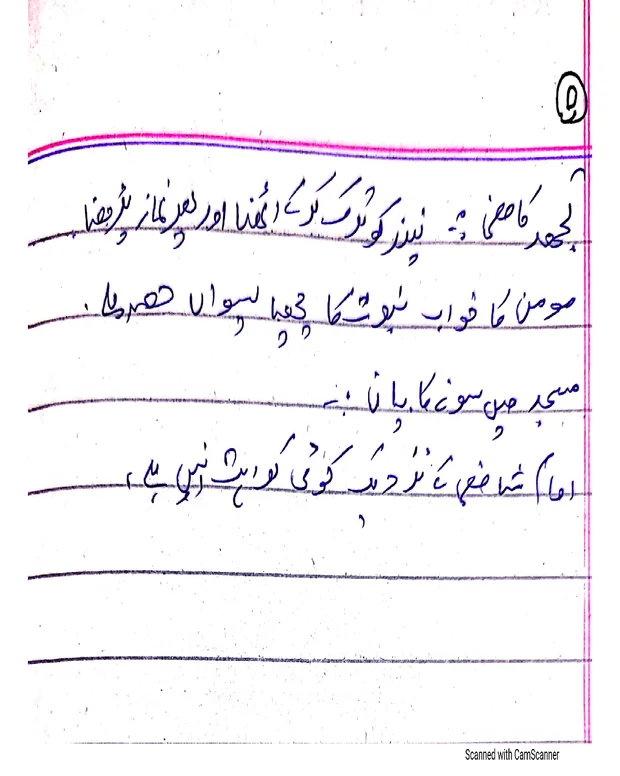 ۹
تہجد کا معنی :- نیند کو ترک کر کے اٹھنا اور پھر نماز پڑھنا
مومن کا خواب نبوت کا چھیالیسواں حصہ ہے۔
مسجد میں سونے کا بیان :-
امام شافعی کے نزدیک کوئی کراہت نہیں ہے۔
Scanned with CamScanner